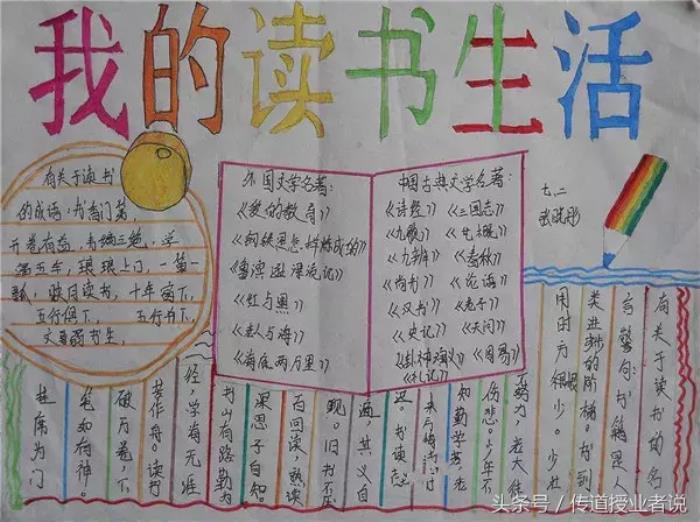 我的读书生活
有关于读书
的成语:书香门第,
开卷有益,韦编三绝,学
富五车,琅琅上口,一箪一
瓢,映月读书,十年窗下,
五行俱下、五行并下、
文弱书生,
外国文学名著:
《爱的教育》
《钢铁是怎样炼成的》
《鲁滨逊漂流记》
《红与黑》
《老人与海》
《海底两万里》
中国古典文学名著:
《诗经》《三国志》
《九歌》
《九辩》《春秋》
《尚书》《论语》
《汉书》《老子》
《史记》《天问》
《封神演义》《周易》
《礼记》
七、二
有关于读书的名
言警句:书籍是人
类进步的阶梯。书到
用时方恨少。少壮
不努力 老大徒
伤悲。少年不
知勤学苦,老
来方悔读书
迟。书读百
遍,其义自
现。旧书不厌
百回读,熟读
深思子自知。
书山有路勤为
径,学海无涯
苦作舟。读书
破万卷,下
笔如有神。
席为门
头条号/传道授业者说